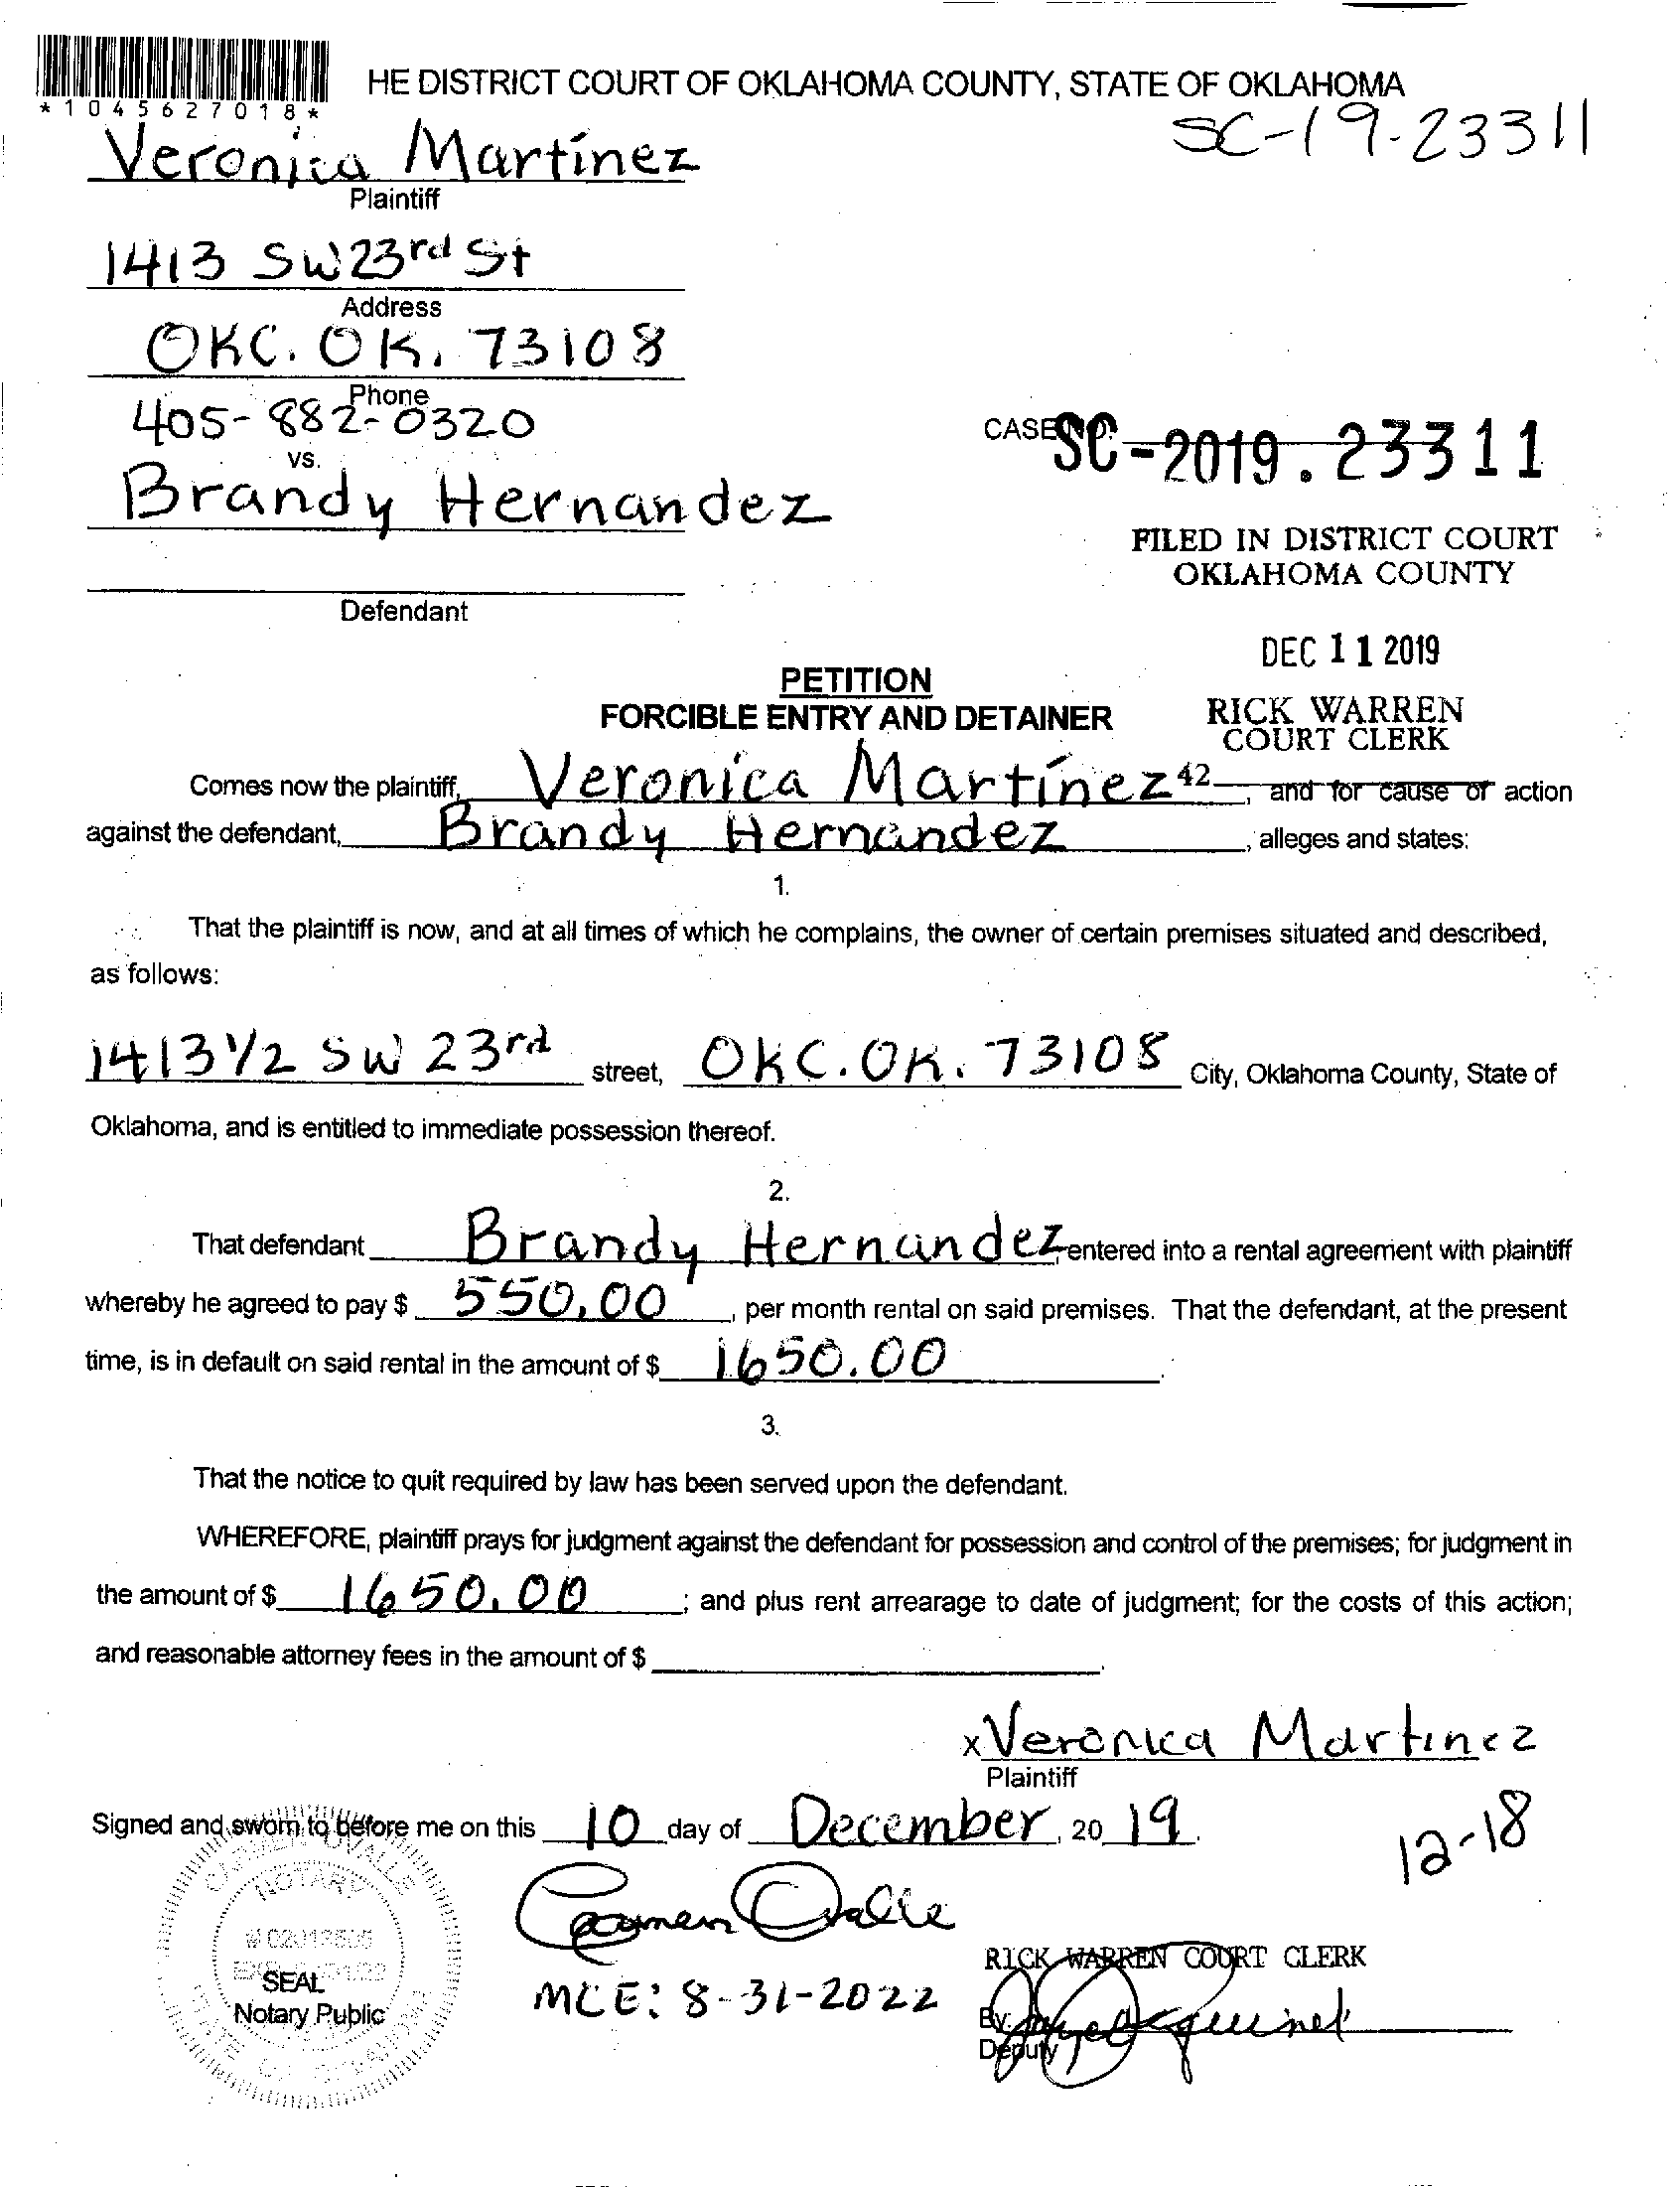 *1045627018*
HE DISTRICT COURT OF OKLAHOMA COUNTY, STATE OF OKLAHOMA
SC-19-23311
Veronica Martinez
Plaintiff
1413 SW 23rd St
Address
OKC. OK. 73108
Phone
405-882-0320
vs.
CASE NO.
SC-2019.23311
Brandy Hernandez
FILED IN DISTRICT COURT
OKLAHOMA COUNTY
Defendant
DEC 11 2019
PETITION
FORCIBLE ENTRY AND DETAINER
RICK WARREN
COURT CLERK
Comes now the plaintiff, Veronica Martinez 42, and for cause of action
against the defendant, Brandy Hernandez, alleges and states:
1.
That the plaintiff is now, and at all times of which he complains, the owner of certain premises situated and described,
as follows:
1413 1/2 SW 23rd street, OKC. OK. 73108 City, Oklahoma County, State of
Oklahoma, and is entitled to immediate possession thereof.
2.
That defendant Brandy Hernandez, entered into a rental agreement with plaintiff
whereby he agreed to pay $ 550.00, per month rental on said premises. That the defendant, at the present
time, is in default on said rental in the amount of $ 1650.00.
3.
That the notice to quit required by law has been served upon the defendant.
WHEREFORE, plaintiff prays for judgment against the defendant for possession and control of the premises; for judgment in
the amount of $ 1650.00; and plus rent arrearage to date of judgment; for the costs of this action;
and reasonable attorney fees in the amount of $ .
x Veronica Martinez
Plaintiff
Signed and sworn to before me on this 10 day of December, 20 19.
12-18
Carmen Ovalle
NOTARY
SEAL
Notary Public
STATE OF OKLAHOMA
MCE: 8-31-2022
RICK WARREN COURT CLERK
By:
Deputy